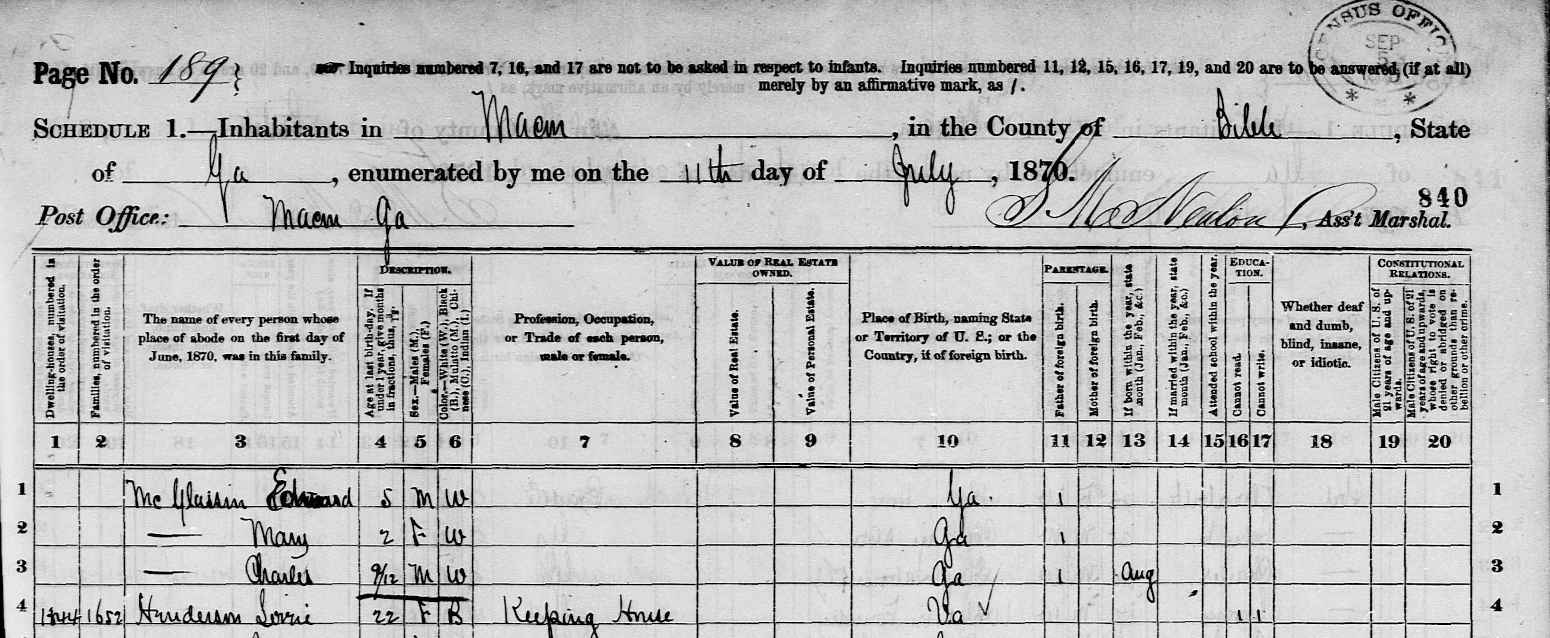 CENSUS OFFICE
SEP
Page No. 189
Inquiries numbered 7, 16, and 17 are not to be asked in respect to infants. Inquiries numbered 11, 12, 15, 16, 17, 19, and 20 are to be answered (if at all)
merely by an affirmative mark, as /.
SCHEDULE 1.—Inhabitants in Macon, in the County of Bibb, State
of Ga, enumerated by me on the 11th day of July, 1870.
840
Post Office: Macon Ga Ass't Marshal.
DESCRIPTION. VALUE OF REAL ESTATE OWNED. PARENTAGE. EDUCATION. CONSTITUTIONAL RELATIONS.
Dwelling-houses, numbered in the order of visitation.
Families, numbered in the order of visitation.
The name of every person whose place of abode on the first day of June, 1870, was in this family.
Age at last birth-day. If under 1 year, give months in fractions, thus,
Sex.—Males (M.), Females (F.)
Color.—White (W.), Black (B.), Mulatto (M.), Chinese (C.), Indian (I.)
Profession, Occupation, or Trade of each person, male or female.
Value of Real Estate.
Value of Personal Estate.
Place of Birth, naming State or Territory of U. S.; or the Country, if of foreign birth.
Father of foreign birth.
Mother of foreign birth.
If born within the year, state month (Jan., Feb., &c.)
If married within the year, state month (Jan., Feb., &c.)
Attended school within the year.
Cannot read.
Cannot write.
Whether deaf and dumb, blind, insane, or idiotic.
Male Citizens of U. S. of 21 years of age and upwards.
Male Citizens of U. S. of 21 years of age and upwards, whose right to vote is denied or abridged on other grounds than rebellion or other crime.
1 2 3 4 5 6 7 8 9 10 11 12 13 14 15 16 17 18 19 20
1 Mc Glassin Edward 5 M W Ga. 1 1
2 — Mary 2 F W Ga 1 2
3 — Charles 9/12 M W Ga 1 Aug 3
4 1652 Henderson 22 F B Keeping House Va 1 1 4